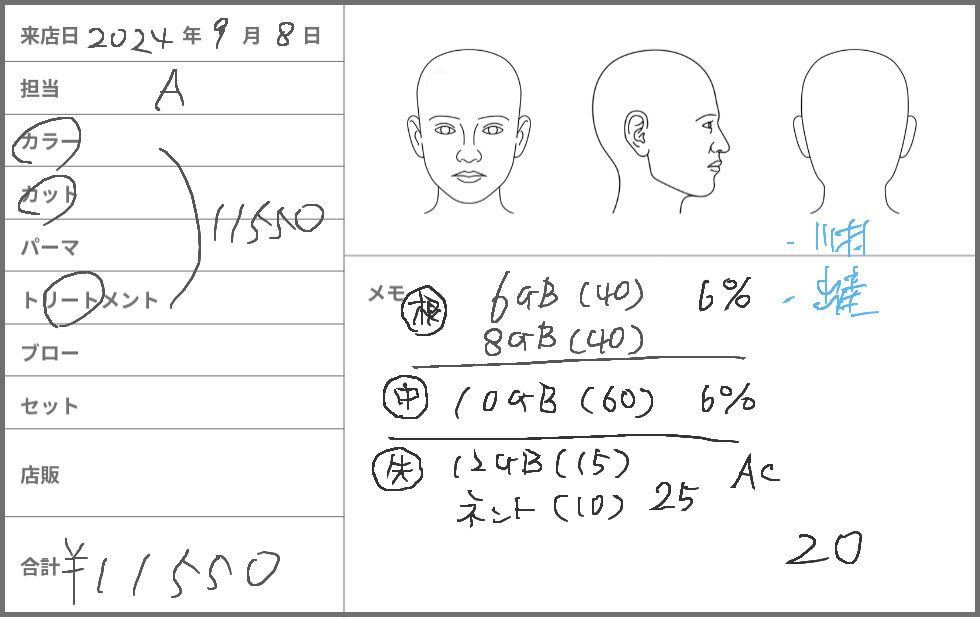 来店日 2024 年 9 月 8 日
担当 A
カラー
カット
パーマ
11550
トリートメント
ブロー
セット
店販
合計 ¥11550
メモ
根 6GB (40) 6%
8GB (40)
中 10GB (60) 6%
先 12GB (15)
(10) 25
Ac
20